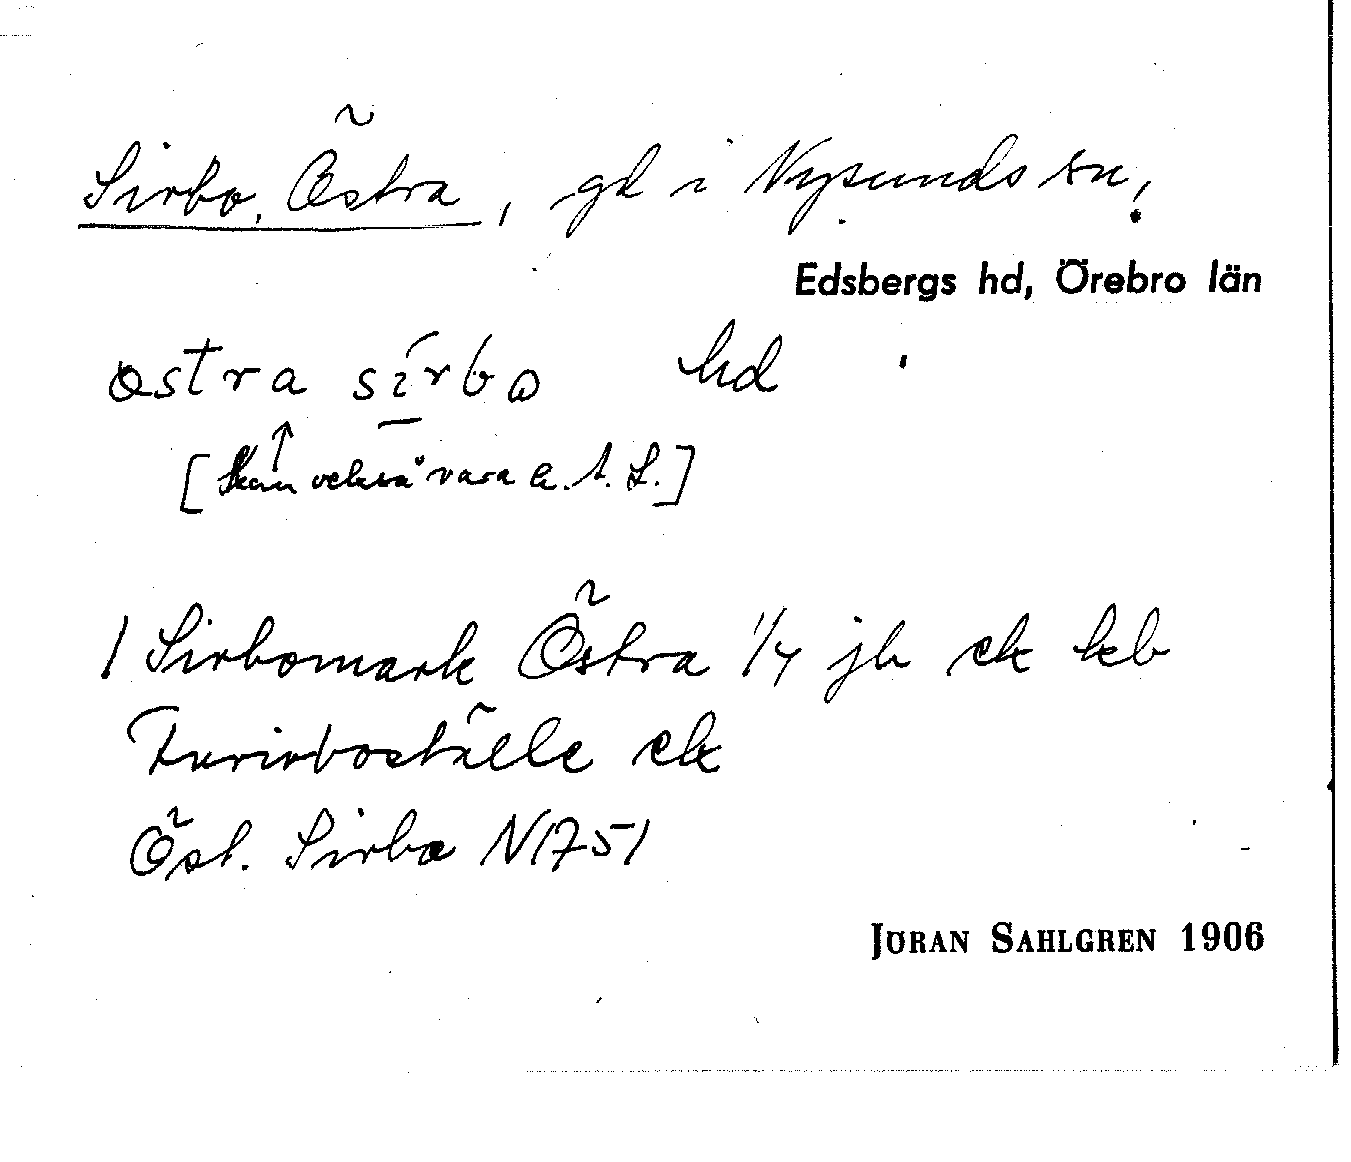 Sirbo, Östra, gd i Nysunds sn,
Edsbergs hd, Örebro län
östra sirbo hd
[Kan också vara a. J. S.]
1 Sirbomark Östra 1/4 jb ek kb
Furirboställe ek
Öst. Sirbo N1751
JÖRAN SAHLGREN 1906